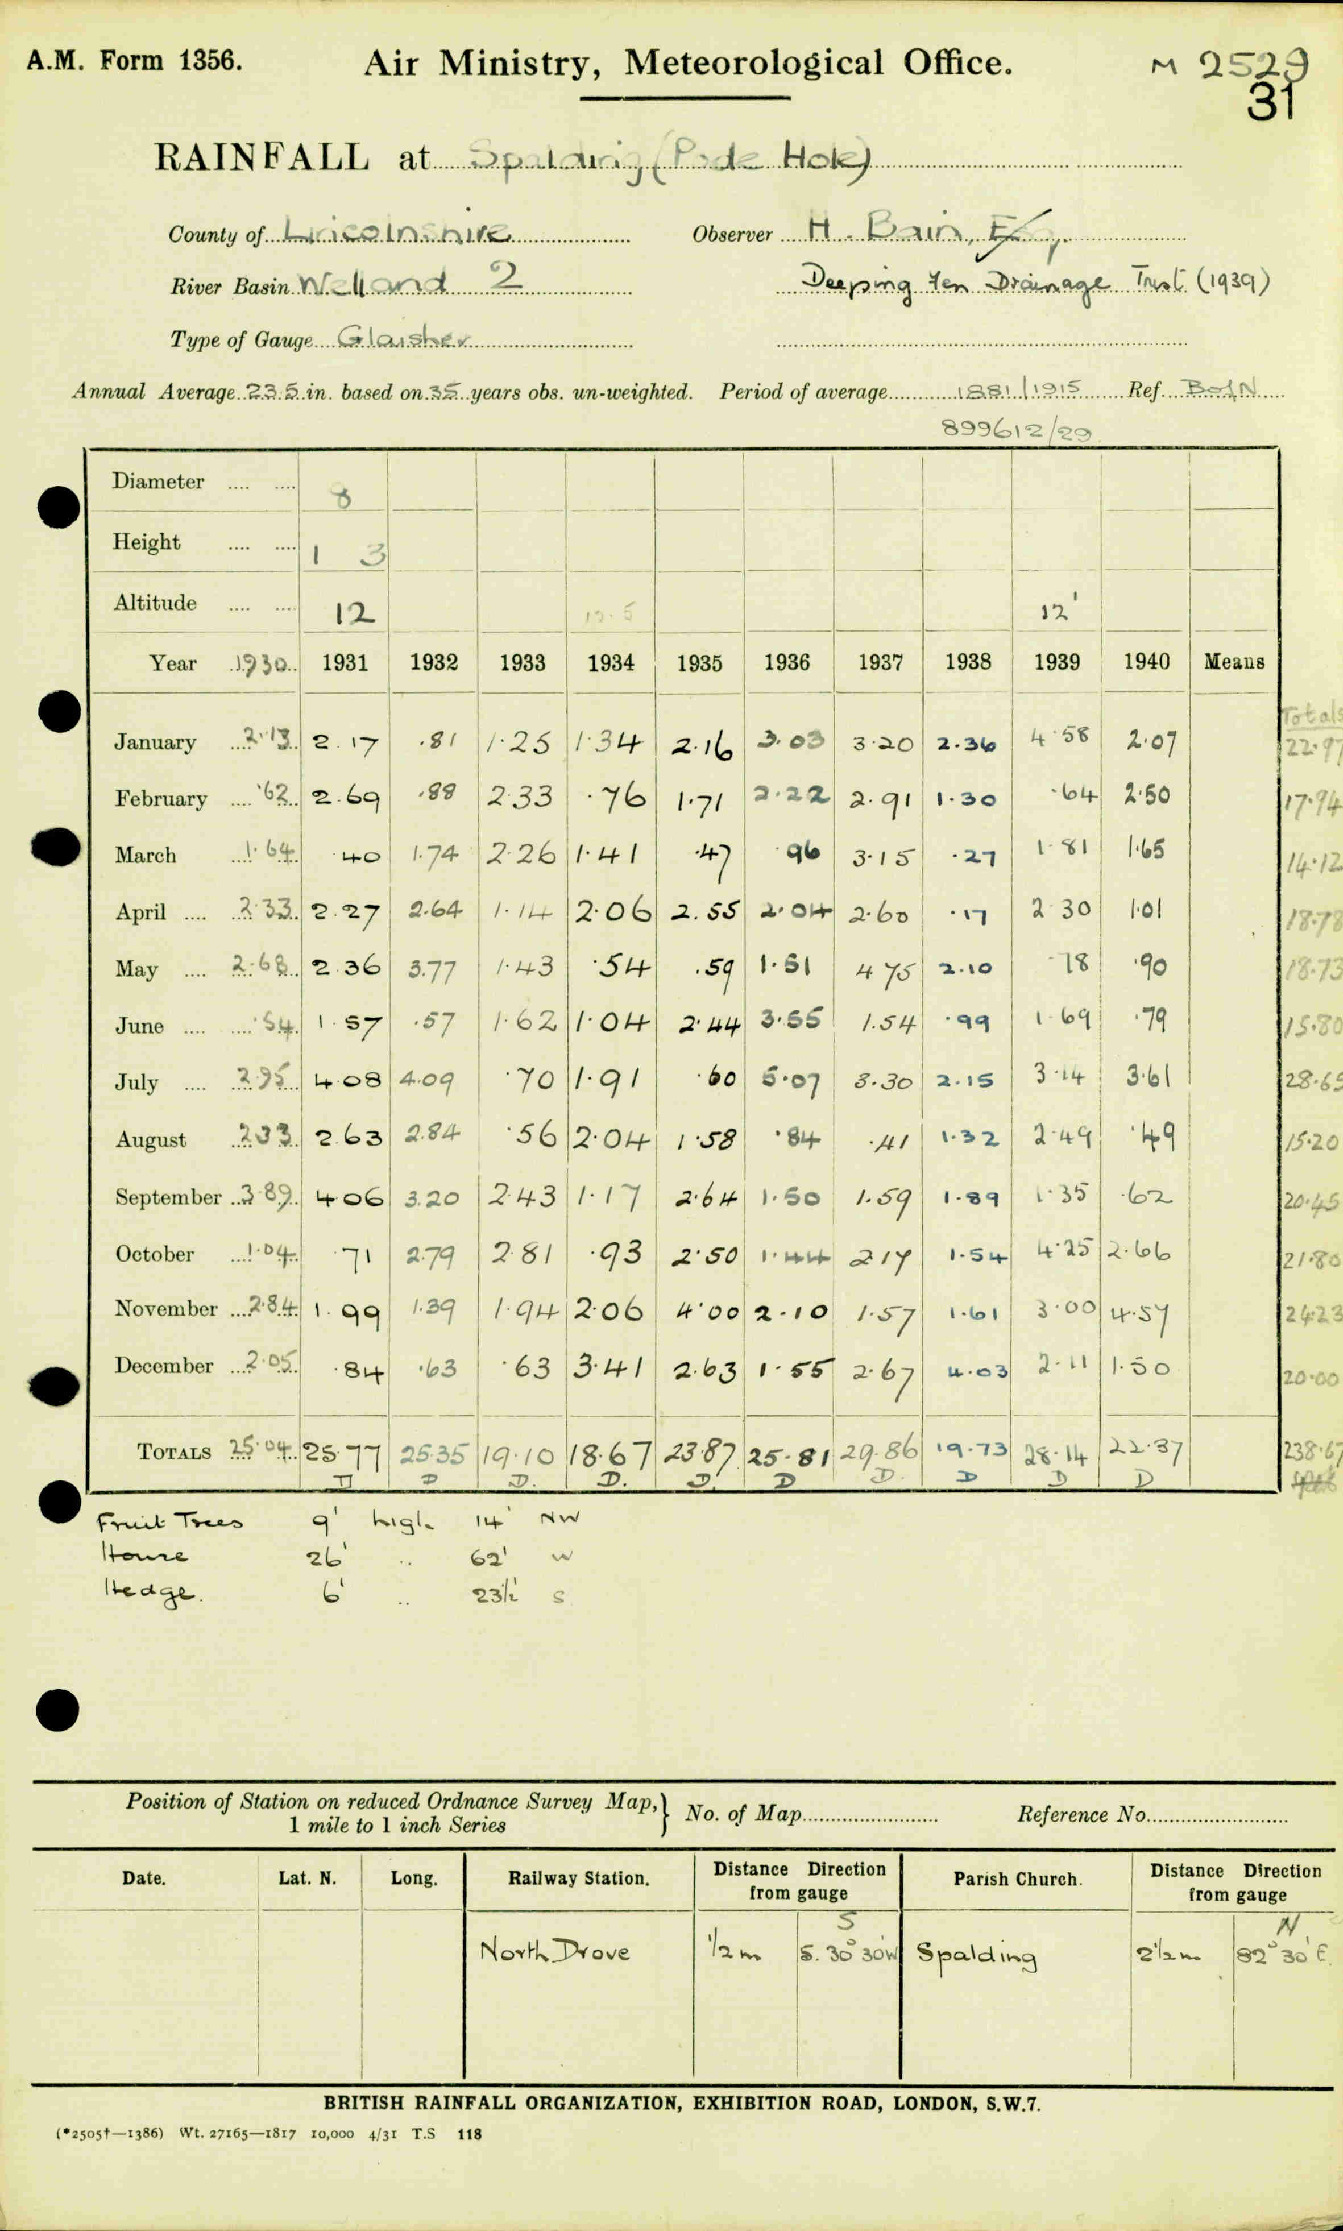 A.M. Form 1356. Air Ministry, Meteorological Office. M 2529
31
RAINFALL at Spalding (Pode Hole)
County of Lincolnshire Observer H. Bain, Esq.
River Basin Welland 2 Deeping Fen Drainage Trust (1939)
Type of Gauge Glaisher
Annual Average 23.5 in. based on 35 years obs. un-weighted. Period of average 1881/1915 Ref. B of N
899612/29
Diameter .... .... 8
Height .... .... 1 3
Altitude .... .... 12 12.5 12'
Year 1930 1931 1932 1933 1934 1935 1936 1937 1938 1939 1940 Means
Totals
January 2.13 2.17 .81 1.25 1.34 2.16 3.03 3.20 2.36 4.58 2.07 22.97
February .62 2.69 .88 2.33 .76 1.71 2.22 2.91 1.30 .64 2.50 17.94
March 1.64 .40 1.74 2.26 1.41 .47 .96 3.15 .27 1.81 1.65 14.12
April 2.33 2.27 2.64 1.14 2.06 2.55 2.04 2.60 .17 2.30 1.01 18.78
May 2.68 2.36 3.77 1.43 .54 .59 1.51 4.75 2.10 .78 .90 18.73
June .54 1.57 .57 1.62 1.04 2.44 3.55 1.54 .99 1.69 .79 15.80
July 2.95 4.08 4.09 .70 1.91 .60 5.07 3.30 2.15 3.14 3.61 28.65
August 2.33 2.63 2.84 .56 2.04 1.58 .84 .41 1.32 2.49 .49 15.20
September 3.89 4.06 3.20 2.43 1.17 2.64 1.50 1.59 1.89 1.35 .62 20.45
October 1.04 .71 2.79 2.81 .93 2.50 1.44 2.17 1.54 4.25 2.66 21.80
November 2.84 1.99 1.39 1.94 2.06 4.00 2.10 1.57 1.61 3.00 4.57 24.23
December 2.05 .84 .63 .63 3.41 2.63 1.55 2.67 4.03 2.11 1.50 20.00
TOTALS 25.04 25.77 25.35 19.10 18.67 23.87 25.81 29.86 19.73 28.14 22.37 238.67
D D D. D. D. D D. D D D
Fruit Trees 9' high 14' NW
House 26' .. 62' W
Hedge. 6' .. 23½' S
Position of Station on reduced Ordnance Survey Map, 1 mile to 1 inch Series No. of Map Reference No.
Date. Lat. N. Long. Railway Station. Distance Direction from gauge Parish Church. Distance Direction from gauge
S N
North Drove ½ m S. 30° 30' W Spalding 2½ m 82° 30' E.
BRITISH RAINFALL ORGANIZATION, EXHIBITION ROAD, LONDON, S.W.7.
(*2505†—1386) Wt. 27165—1817 10,000 4/31 T.S 118